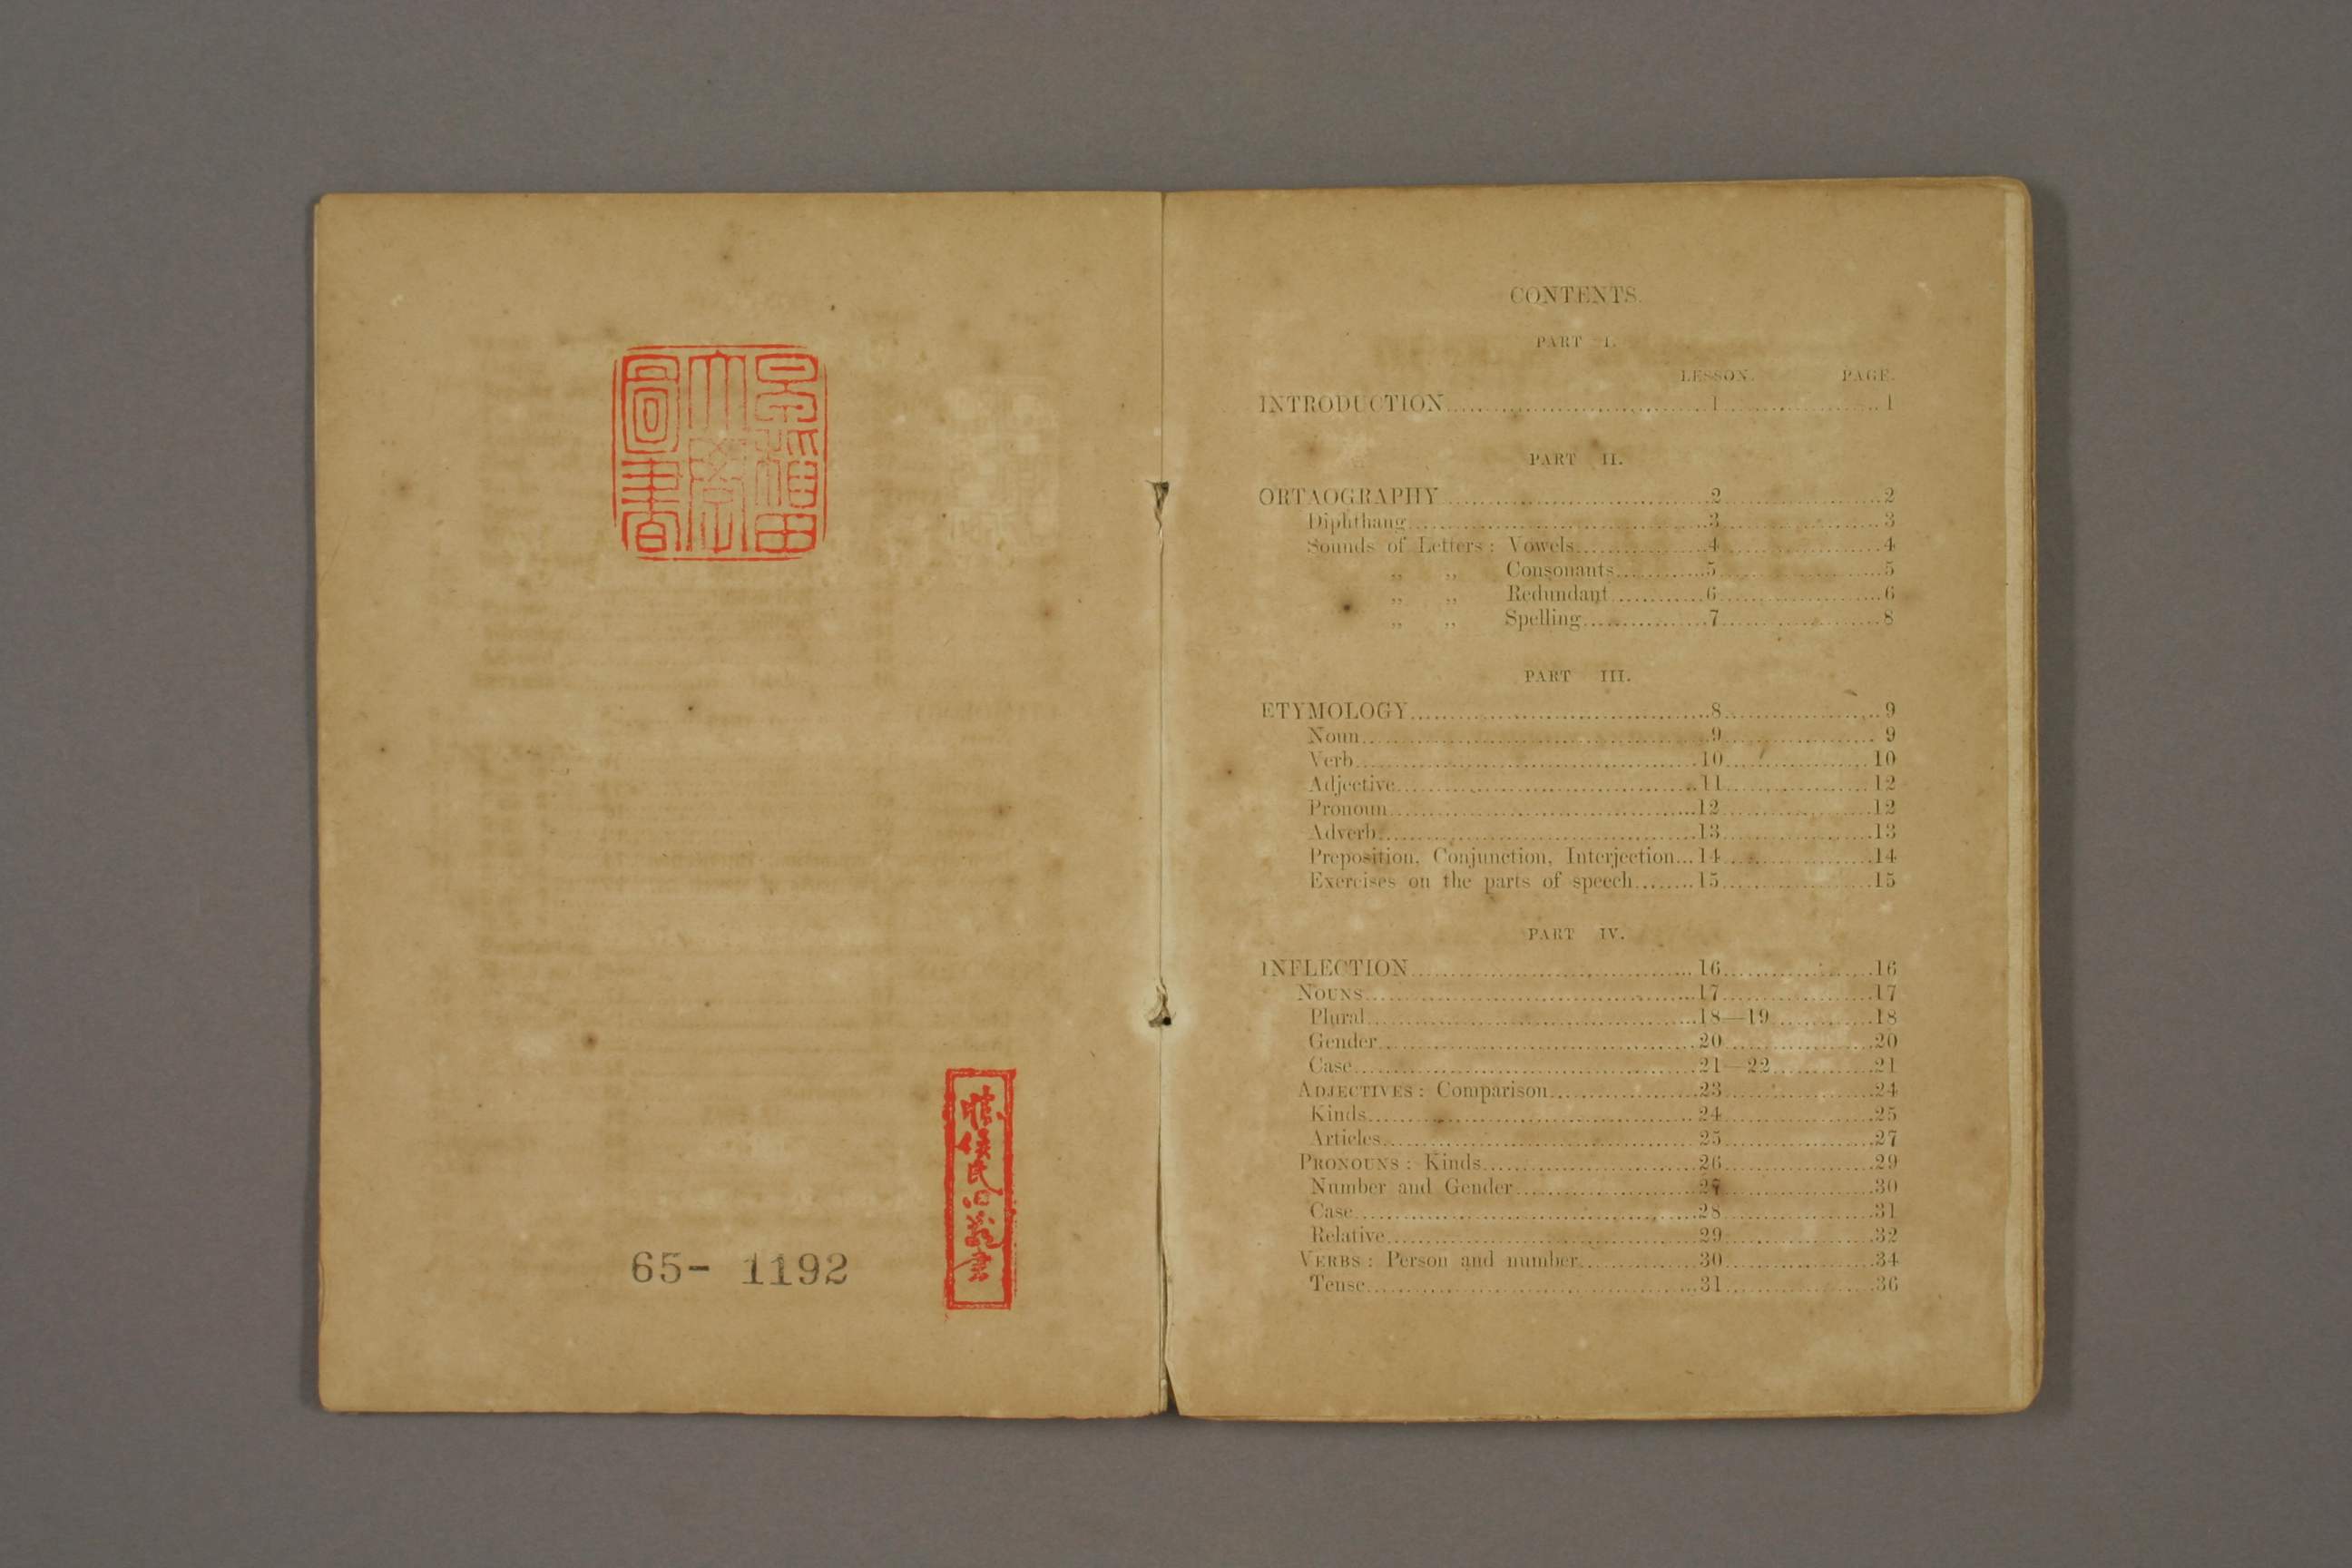 早稻田
大學
圖書
勝俣氏旧蔵書
65- 1192
CONTENTS.
PART I.
LESSON. PAGE.
INTRODUCTION........1........1
PART II.
ORTAOGRAPHY........2........2
Diphthang........3........3
Sounds of Letters : Vowels........4........4
„ „ Consonants........5........5
„ „ Redundant........6........6
„ „ Spelling........7........8
PART III.
ETYMOLOGY........8........9
Noun........9........9
Verb........10........10
Adjective........11........12
Pronoun........12........12
Adverb........13........13
Preposition, Conjunction, Interjection...14........14
Exercises on the parts of speech........15........15
PART IV.
INFLECTION........16........16
NOUNS........17........17
Plural........18—19........18
Gender........20........20
Case........21—22........21
ADJECTIVES : Comparison........23........24
Kinds........24........25
Articles........25........27
PRONOUNS : Kinds........26........29
Number and Gender........27........30
Case........28........31
Relative........29........32
VERBS : Person and number........30........34
Tense........31........36